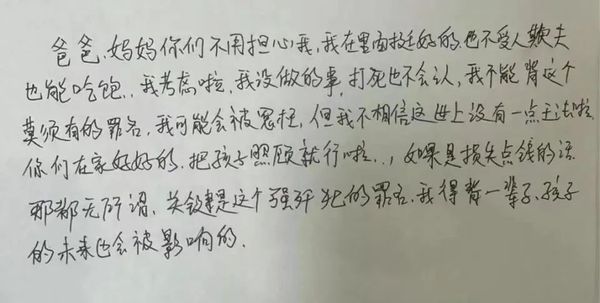 爸爸、妈妈你们不用担心我,我在里面挺好的,也不受人欺夫
也能吃饱.,我考虑啦,我没做的事,打死也不会认,我不能背这个
莫须有的罪名,我可能会被冤枉,但我不相信这世上没有一点王法啦,
你们在家好好的,把孩子照顾就行啦..,如果是损失点钱的话
那都无所谓,关键是这个强奸犯的罪名,我得背一辈子,孩子
的未来也会被影响的.